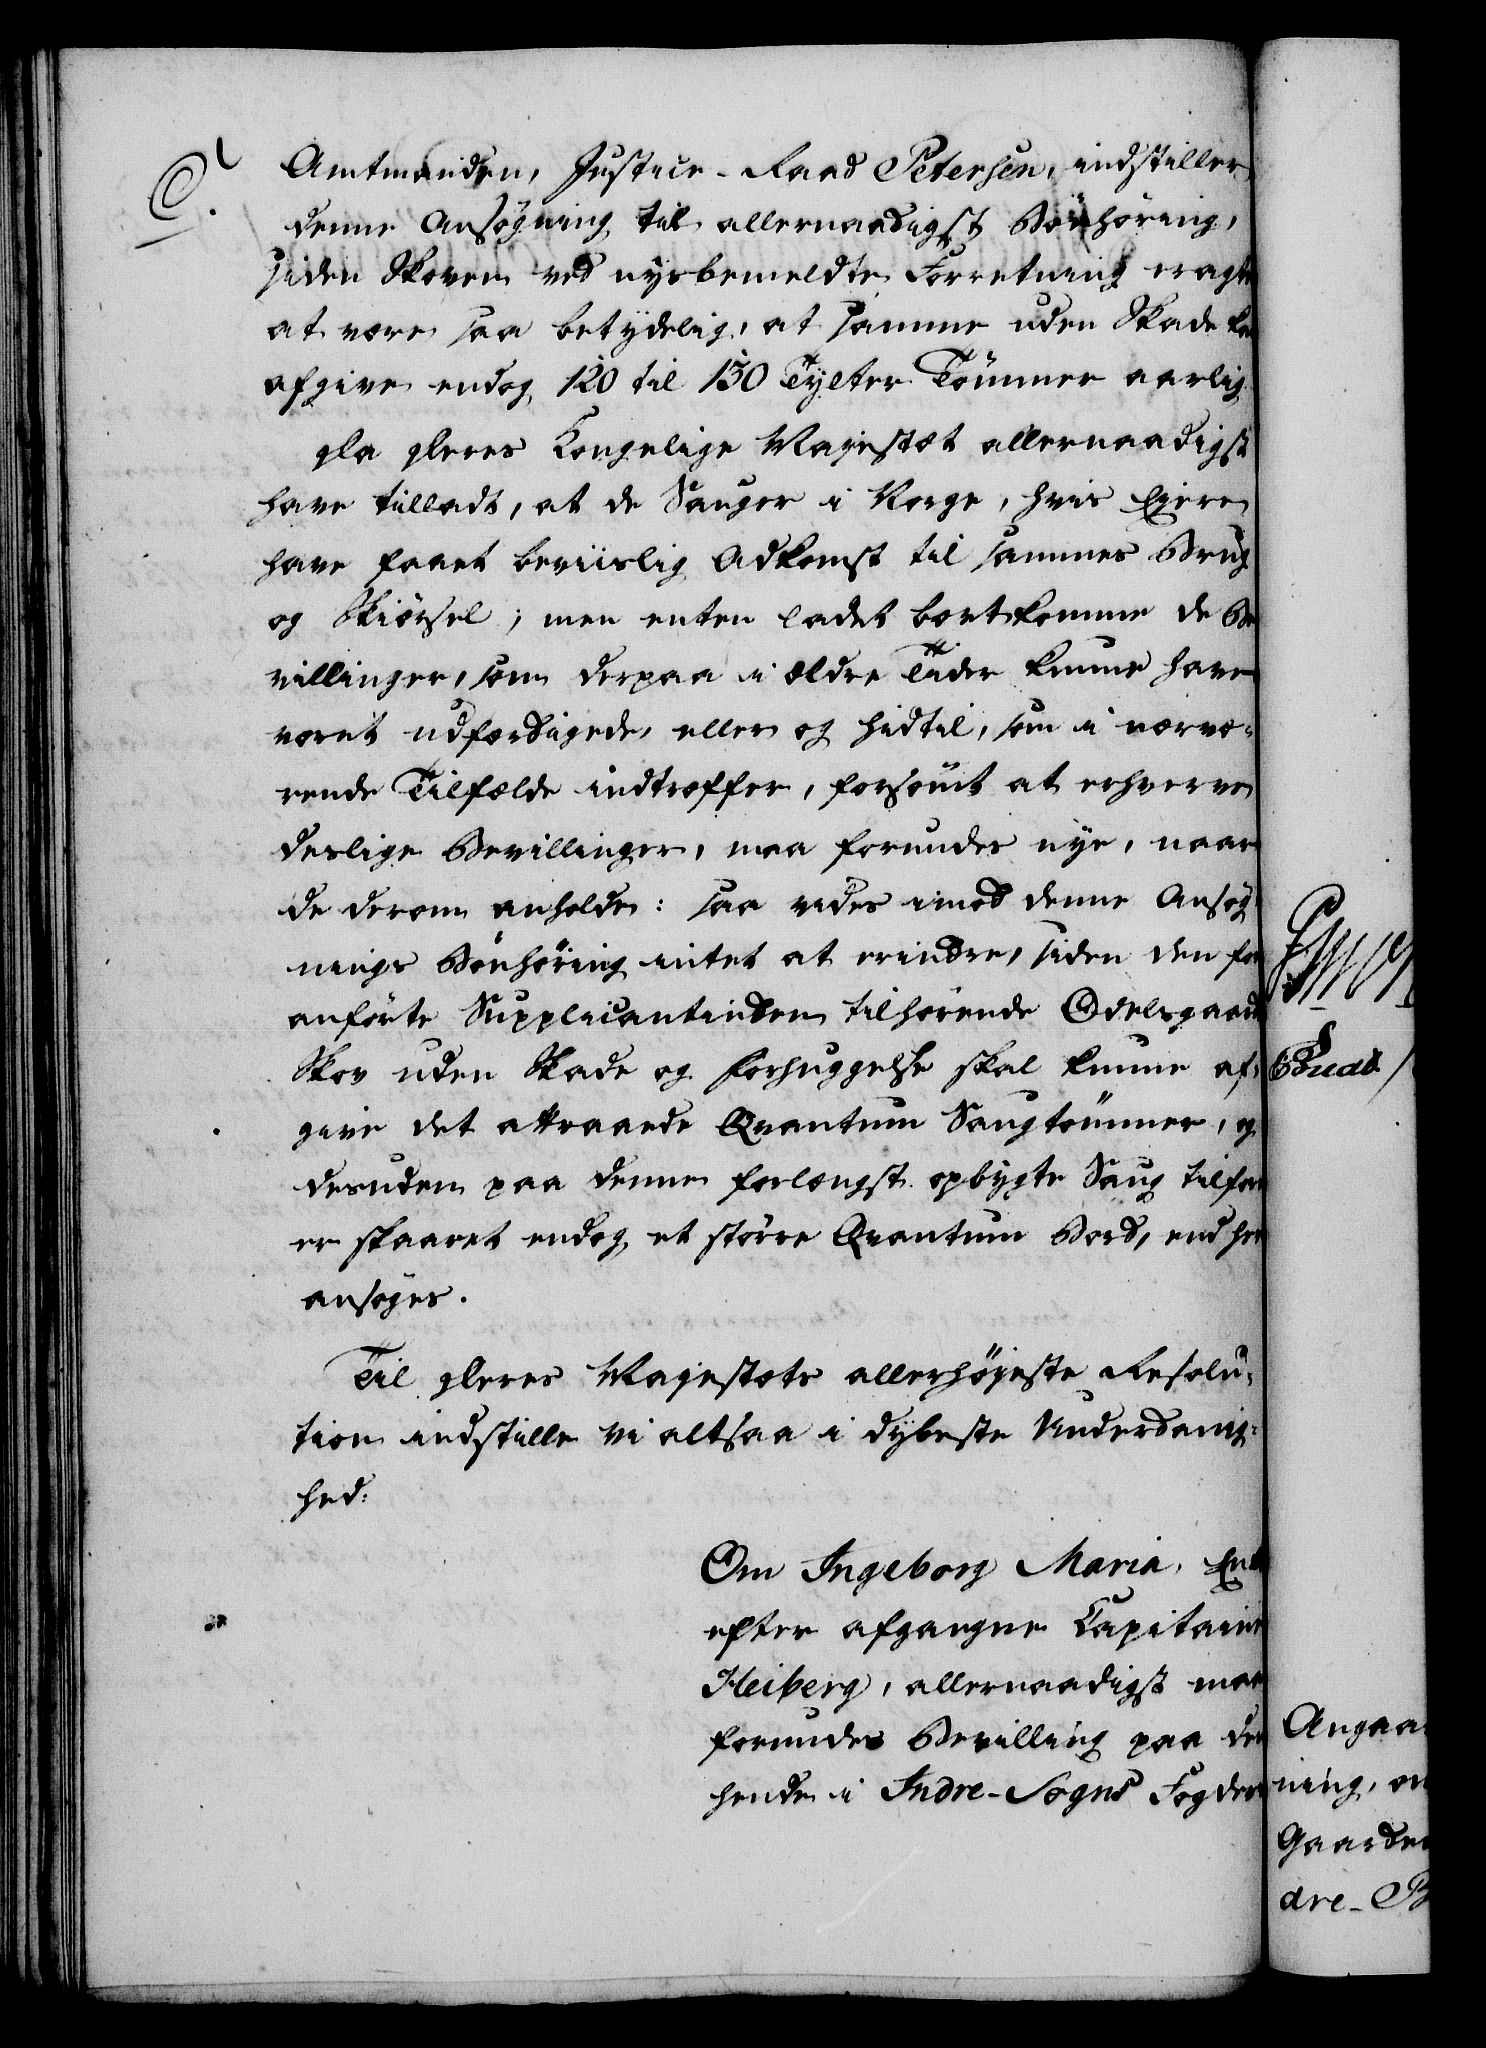 C.
Amtmanden, Justice-Raad Petersen, indstiller
denne Ansøgning til allernaadigst Bønhøring,
siden Skoven ved nysbemeldte Forretning eragtes
at være saa betydelig, at samme uden Skade kan
afgive endog 120 til 150 Tylter Tømmer aarlig.
Da Deres Kongelige Majestæt allernaadigst
have tilladt, at de Sauger i Norge, hvis Eiere
have havt beviislig Adkomst til sammes Brug
og Skiørsel; men enten ladet bortkomme de Be
villinger, som derpaa i ældre Tider kunne have
været udfærdigede, eller og hidtil, som i nærvæ-
rende Tilfælde indtræffer, forsømt at erhverve
deslige Bevillinger, maa forundes nye, naar
de derom anholde: saa vides imod denne Ansøg
nings Bønhøring intet at erindre, siden den for
anførte Supplicantinden tilhørende Odelsgaards
Skov uden Skade og Forhuggelse skal kunne af-
give det attraaede Qvantum Saugtømmer, og
desuden paa denne forlængst opbygte Saug tilforn
er skaaret endog et større Qvantum Bord, end her
ansøges.
Til Deres Majestæts allerhøjeste Resolu-
tion indstille vi altsaa i dybeste Underdanig-
hed:
Om Ingeborg Maria, Enke
efter afgangne Capitaine
Heiberg, allernaadigst maa
forundes Bevilling paa den
hende i Indre-Sogns Fogderi